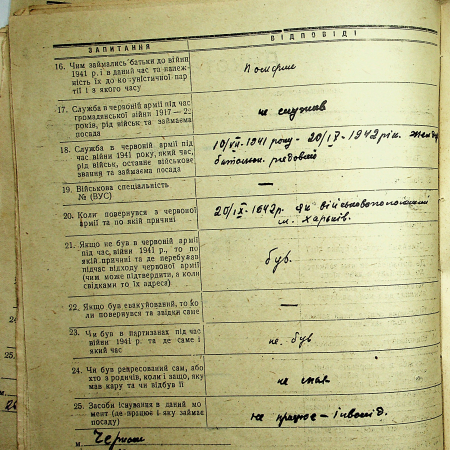 ЗАПИТАННЯ
ВІДПОВІДІ
16. Чим займались батьки до війни
1941 р. і в даний час та належ-
ність їх до комуністичної пар-
тії і з якого часу
Померли
17. Служба в червоній армії під час
громадянської війни 1917—22
років, рід військ та займаєма
посада
не служив
18. Служба в червоній армії під
час війни 1941 року, який час,
рід військ, останнє військове
звання та займаєма посада
10/VII-1941 року - 20/IX-1942 рік.
батальон. рядовий
19. Військова спеціальність
№ (ВУС)
—
20. Коли повернувся з червоної
армії та по якій причині
20/IX-1942 р. як військовополонений
м. Харків.
21. Якщо не був в червоній армії
під час війни 1941 р., то по
якій причині та де перебував
підчас відходу червоної армії
(чим може підтвердити, а коли
свідками то їх адреса)
був.
22. Якщо був евакуйований, то ко-
ли повернувся та звідки саме
—
23. Чи був в партизанах під час
війни 1941 р. та де саме і
який час
не був
24. Чи був репресований сам, або
хто з родичів, коли і защо, яку
мав кару та чи відбув її
не мав
25. Засоби існування в даний мо-
мент (де працює і яку займає
посаду)
не працює - інвалід.
м.